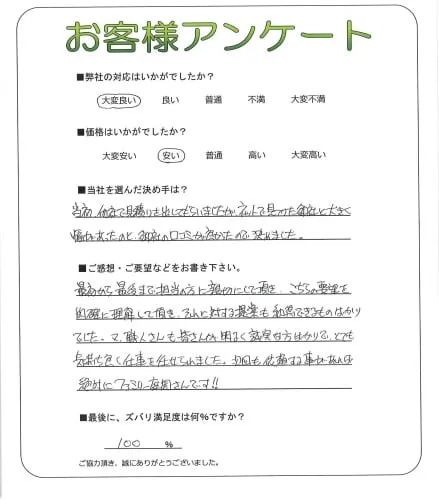 お客様アンケート
■弊社の対応はいかがでしたか?
大変良い 良い 普通 不満 大変不満
■価格はいかがでしたか?
大変安い 安い 普通 高い 大変高い
■当社を選んだ決め手は?
当初、他社で見積りを出してもらいましたが、ネットで見つけた御社と大きく
幅があったのと、御社の口コミが良かったので決めました。
■ご感想・ご要望などをお書き下さい。
最初から最後まで担当の方に親切にして頂き、こちらの要望を
的確に理解して頂き、それに対する提案も納得できるものばかり
でした。又、職人さんも皆さんが明るく誠実な方ばかりで、とても
気持ち良く仕事を任せられました。次回も依頼する事があれば
絶対にファミリー庭園さんです!!
■最後に、ズバリ満足度は何%ですか?
100 %
ご協力頂き、誠にありがとうございました。